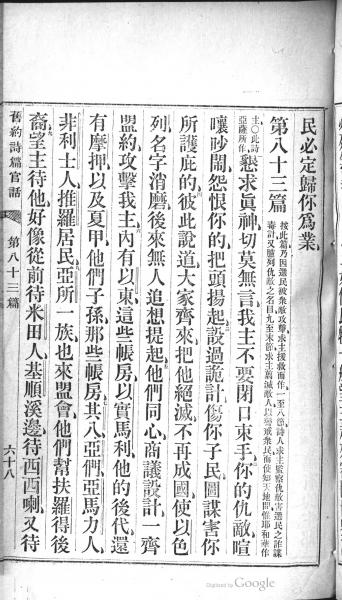 民必定歸你爲業
第八十三篇
按此篇乃因選民被衆敵攻擊求主援救而作○一至八節詩人求主監察仇敵害選民之詭謀
毒計又臚列仇敵之名目九至末節求主滅敵人以警戒衆民而使知天地間惟耶和華作
主○此詩
亞薩所作
懇求眞神切莫無言我主不要閉口束手你的仇敵喧
嚷吵鬧怨恨你的把頭揚起設過詭計傷你子民圖謀害你
所護庇的彼此說道大家齊來把他絕滅不再成國使以色
列名字消磨後來無人追想提起他們同心商議設計一齊
盟約攻擊我主內有以東這些帳房以實馬利他的後代還
有摩押以及夏甲他們子孫那些帳房其八亞們亞馬力人
非利士人推羅居民亞所一族也來盟會他們幫扶羅得後
裔望主待他好像從前待米田人基順溪邊待西西喇又待
舊約詩篇官話
第八十三篇
六十八
Digitized by Google